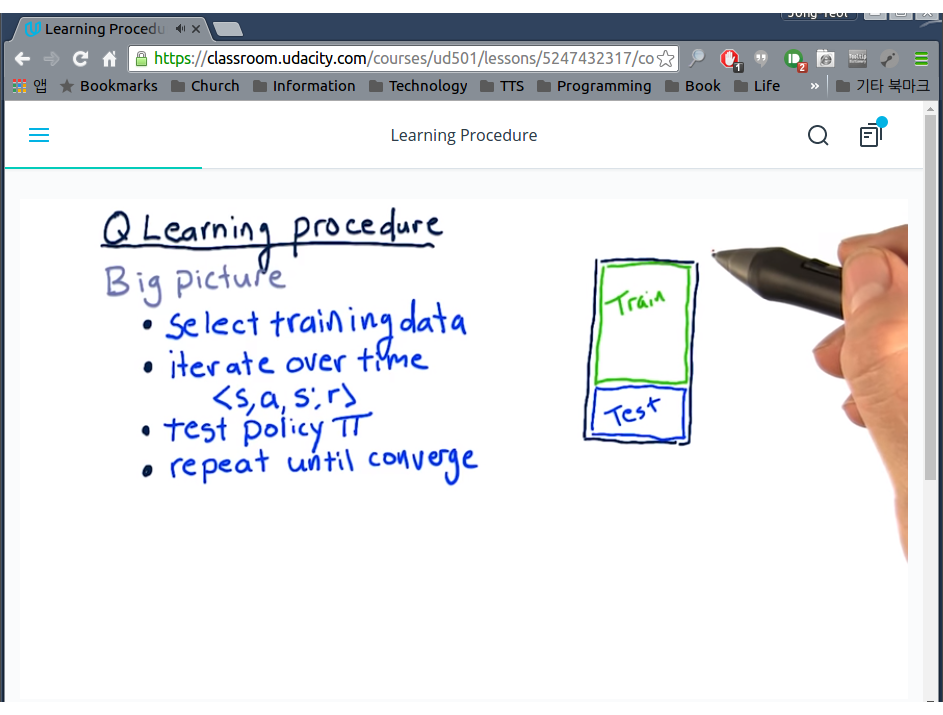 Jong Yeol
Learning Procedu
https://classroom.udacity.com/courses/ud501/lessons/5247432317/co
1
2
앱 Bookmarks Church Information Technology TTS Programming Book Life » 기타 북마크
Learning Procedure
Q Learning procedure
Big picture
• select training data
• iterate over time
<s, a, s', r>
• test policy π
• repeat until converge
Train
Test